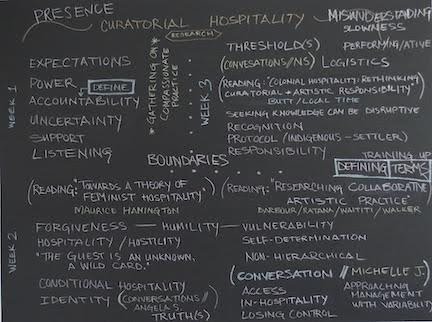 PRESENCE
CURATORIAL HOSPITALITY
MISUNDERSTANDING
SLOWNESS
RESEARCH
PERFORMING/ATIVE
THRESHOLD(S)
(CONVERSATIONS//NS) LOGISTICS
WEEK 1
EXPECTATIONS
POWER DEFINE
ACCOUNTABILITY
UNCERTAINTY
SUPPORT
LISTENING
* GATHERING ON *
COMPASSIONATE
PRACTICE
WEEK 3
(READING: "COLONIAL HOSPITALITY: RETHINKING
CURATORIAL + ARTISTIC RESPONSIBILITY")
BUTT/LOCAL TIME
SEEKING KNOWLEDGE CAN BE DISRUPTIVE
RECOGNITION
PROTOCOL (INDIGENOUS - SETTLER)
RESPONSIBILITY
BOUNDARIES
TRAINING UP
DEFINING TERMS
(READING: "TOWARDS A THEORY OF
FEMINIST HOSPITALITY")
MAURICE HAMINGTON
(READING: "RESEARCHING COLLABORATIVE
ARTISTIC PRACTICE")
BARBOUR/RATANA/WAITITI/WALKER
WEEK 2
FORGIVENESS — HUMILITY — VULNERABILITY
HOSPITALITY/HOSTILITY
"THE GUEST IS AN UNKNOWN,
A WILD CARD."
SELF-DETERMINATION
NON-HIERARCHICAL
CONDITIONAL HOSPITALITY
IDENTITY (CONVERSATIONS//
ANGELA S.
TRUTH(S)
(CONVERSATION // MICHELLE J.)
ACCESS
IN-HOSPITALITY
LOSING CONTROL
APPROACHING
MANAGEMENT
WITH VARIABILITY